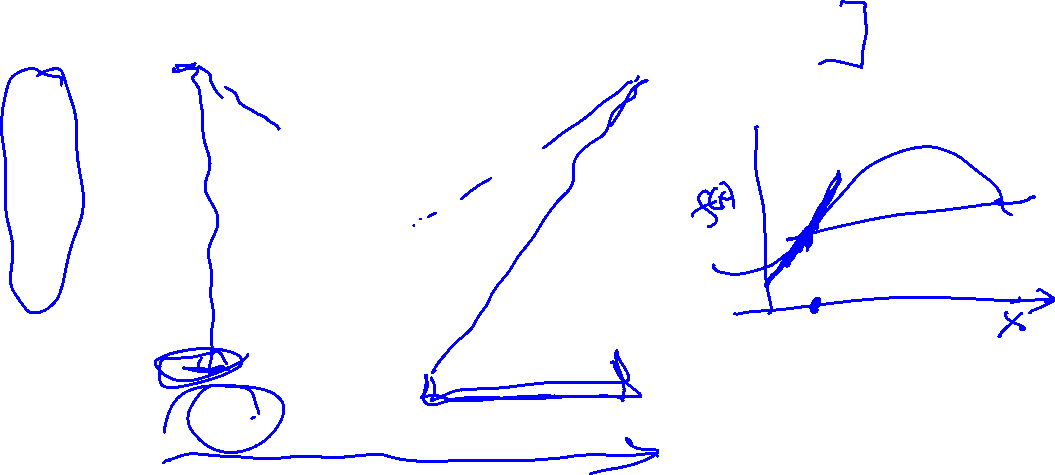 f(x)
x